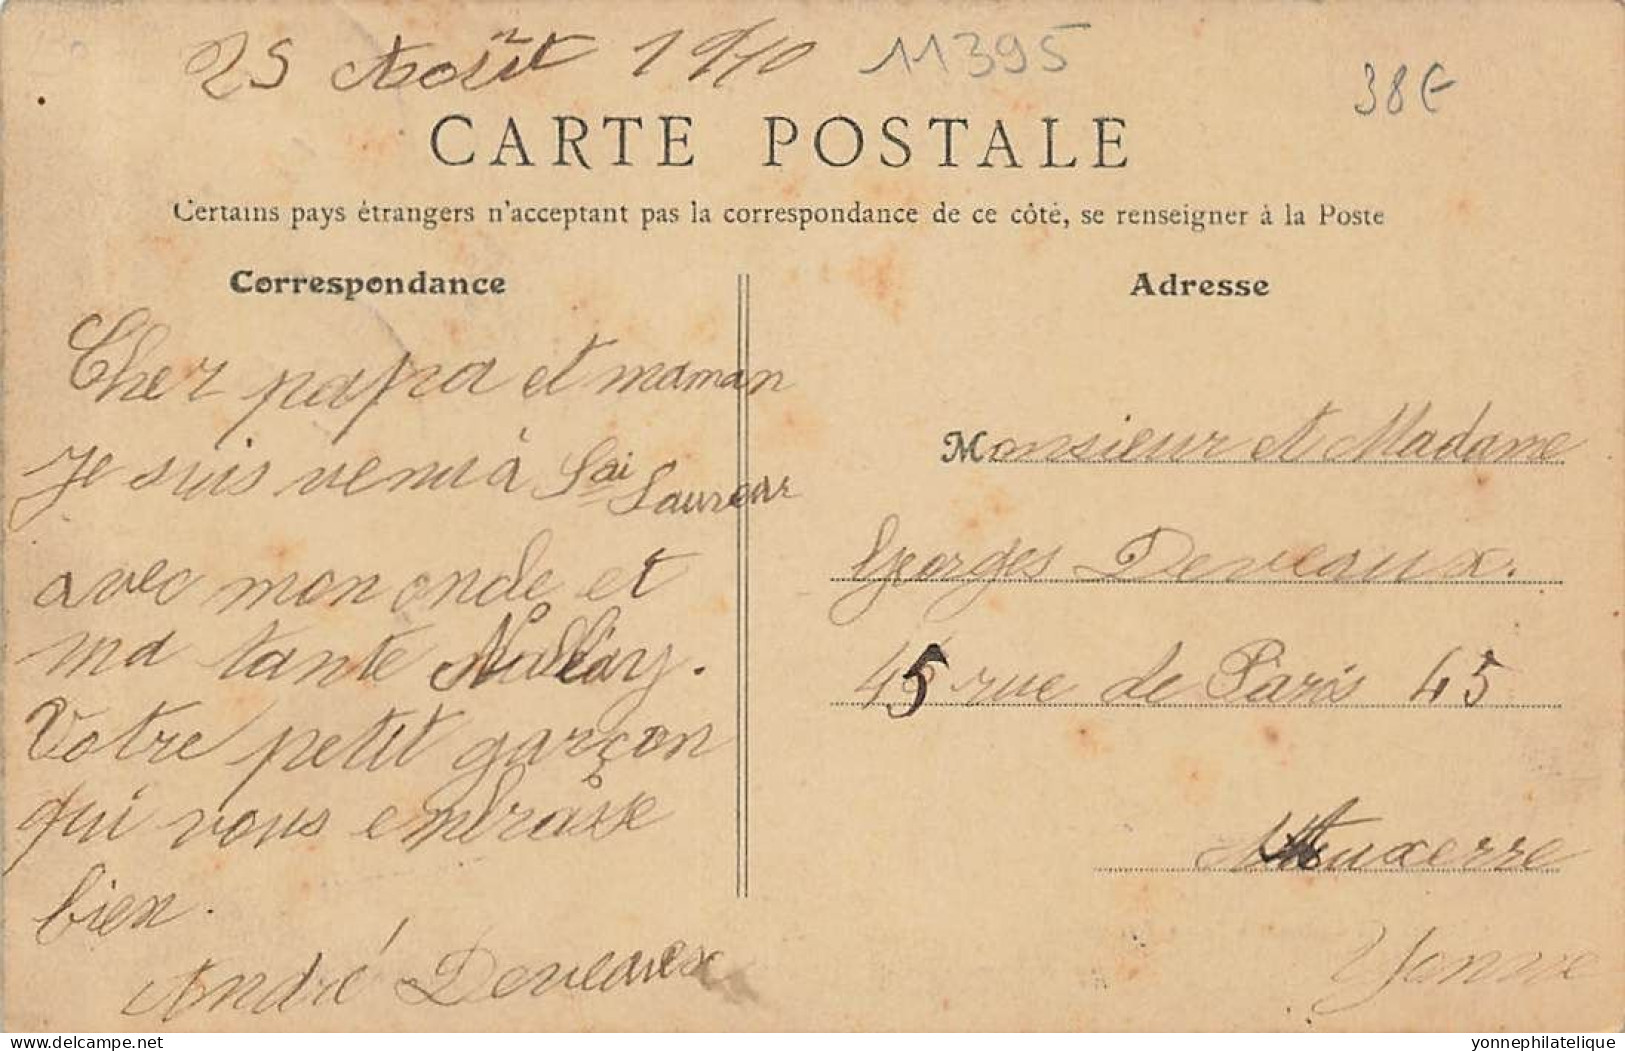 25 Août 1910 11395
38€
CARTE POSTALE
Certains pays étrangers n'acceptant pas la correspondance de ce côté, se renseigner à la Poste
Correspondance
Cher papa et maman
Je suis venu à Sai
Laurent
avec mon oncle et
ma tante
Votre petit garçon
qui vous embrasse
bien.
André Deveaux
Adresse
Monsieur et Madame
Georges Deveaux.
45 rue de Paris 45
Auxerre
Yonne
www.delcampe.net
yonnephilatelique